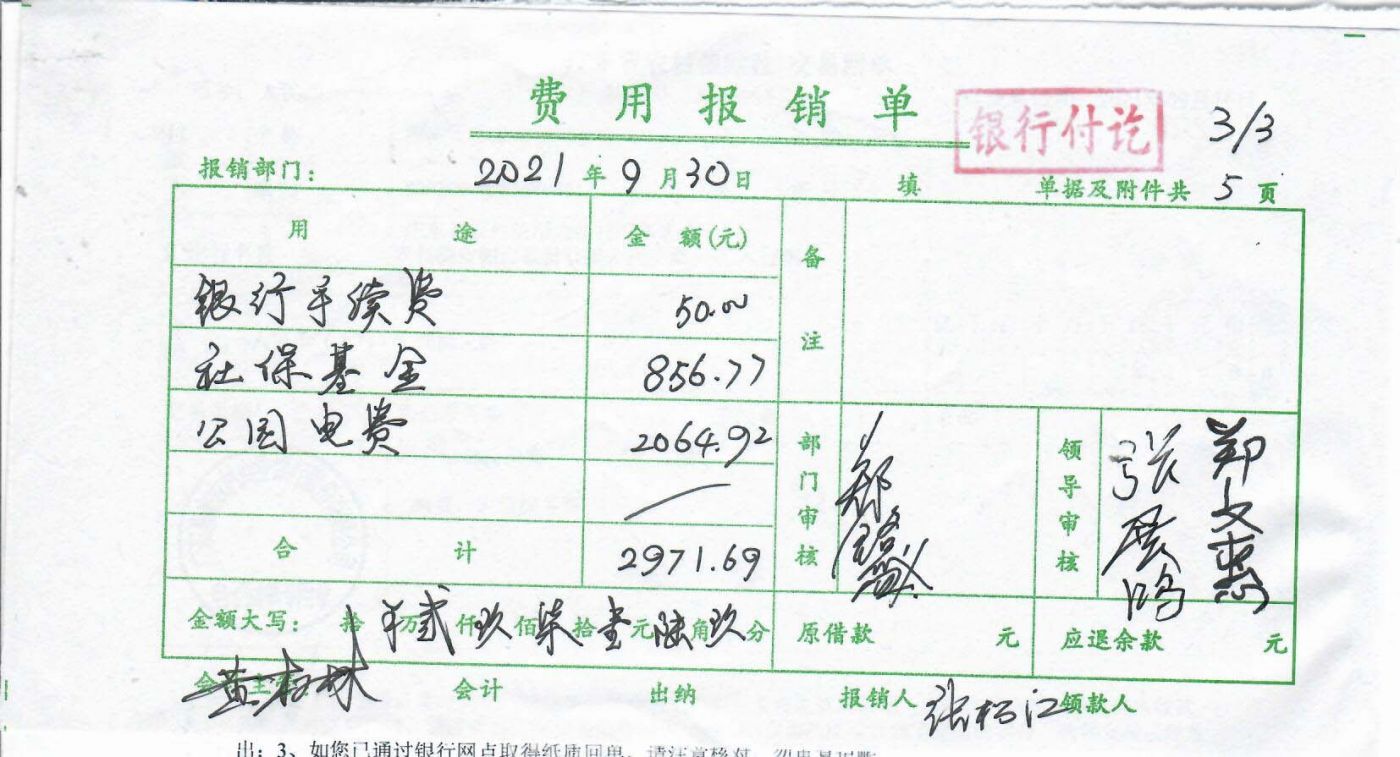 费用报销单
银行付讫
3/3
报销部门： 2021年9月30日 填 单据及附件共 5 页
用途 金额(元) 备注
银行手续费 50.00
社保基金 856.77
公园电费 2064.92
部门审核 领导审核
合计 2971.69
金额大写： 拾 万贰仟玖佰柒拾壹元陆角玖分 原借款 元 应退余款 元
会 主 会计 出纳 报销人 张松江 领款人
黄 林
出；3、如您已通过银行网点取得纸质回单，请注意核对，勿重复记账